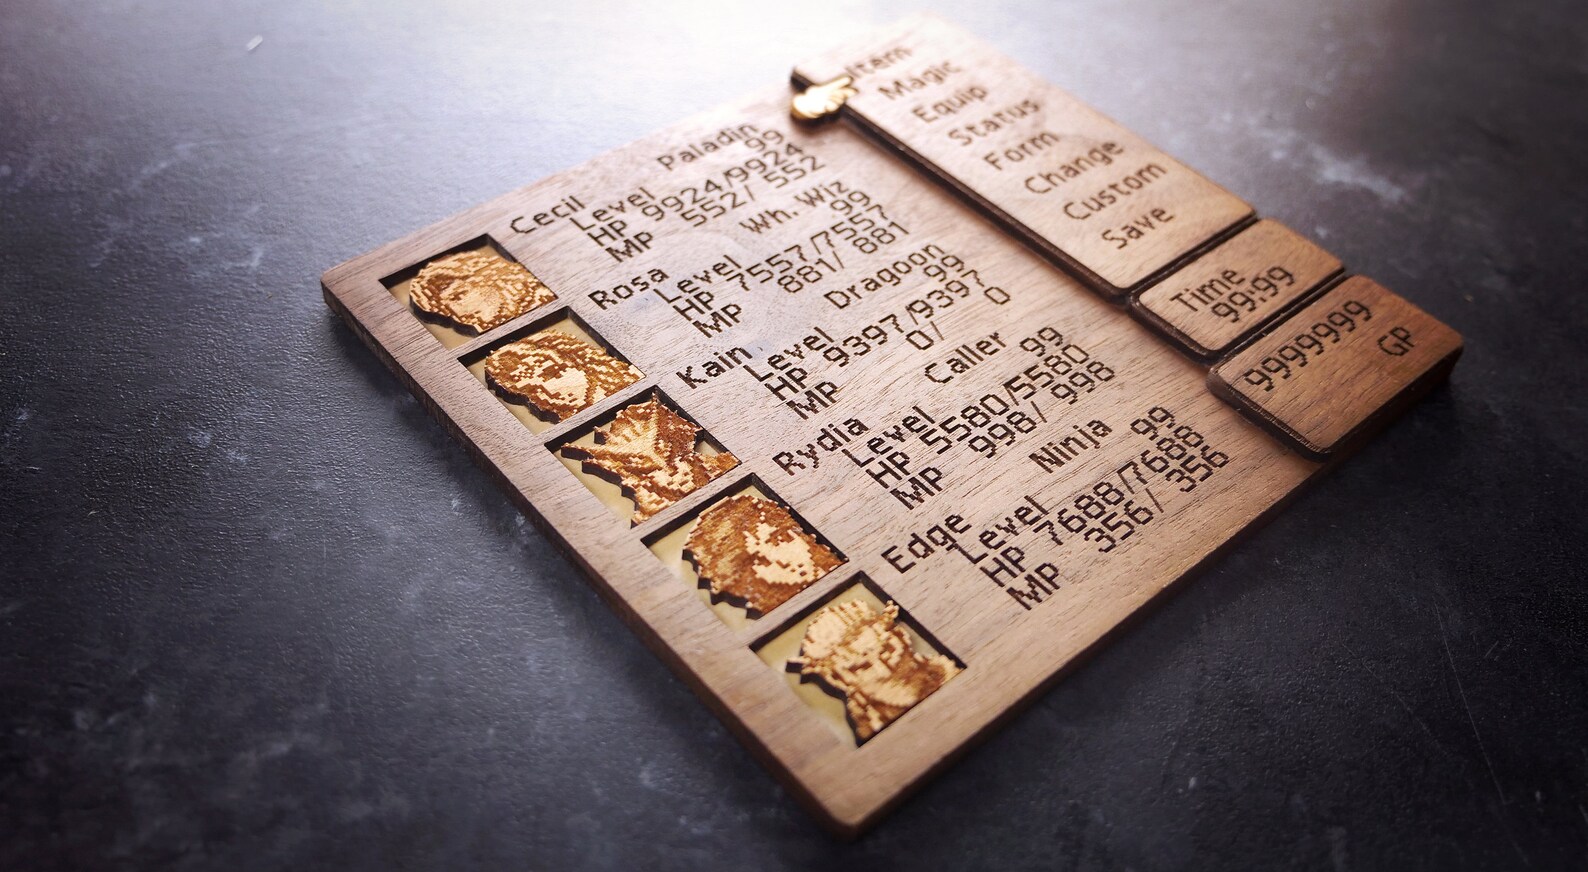 Cecil Paladin
Level 99
HP 9924/9924
MP 552/ 552
Rosa Wh. Wiz
Level 99
HP 7557/7557
MP 881/ 881
Kain Dragoon
Level 99
HP 9397/9397
MP 0/ 0
Rydia Caller
Level 99
HP 5580/5580
MP 998/ 998
Edge Ninja
Level 99
HP 7688/7688
MP 356/ 356
Item
Magic
Equip
Status
Form
Change
Custom
Save
Time
99:99
9999999
GP